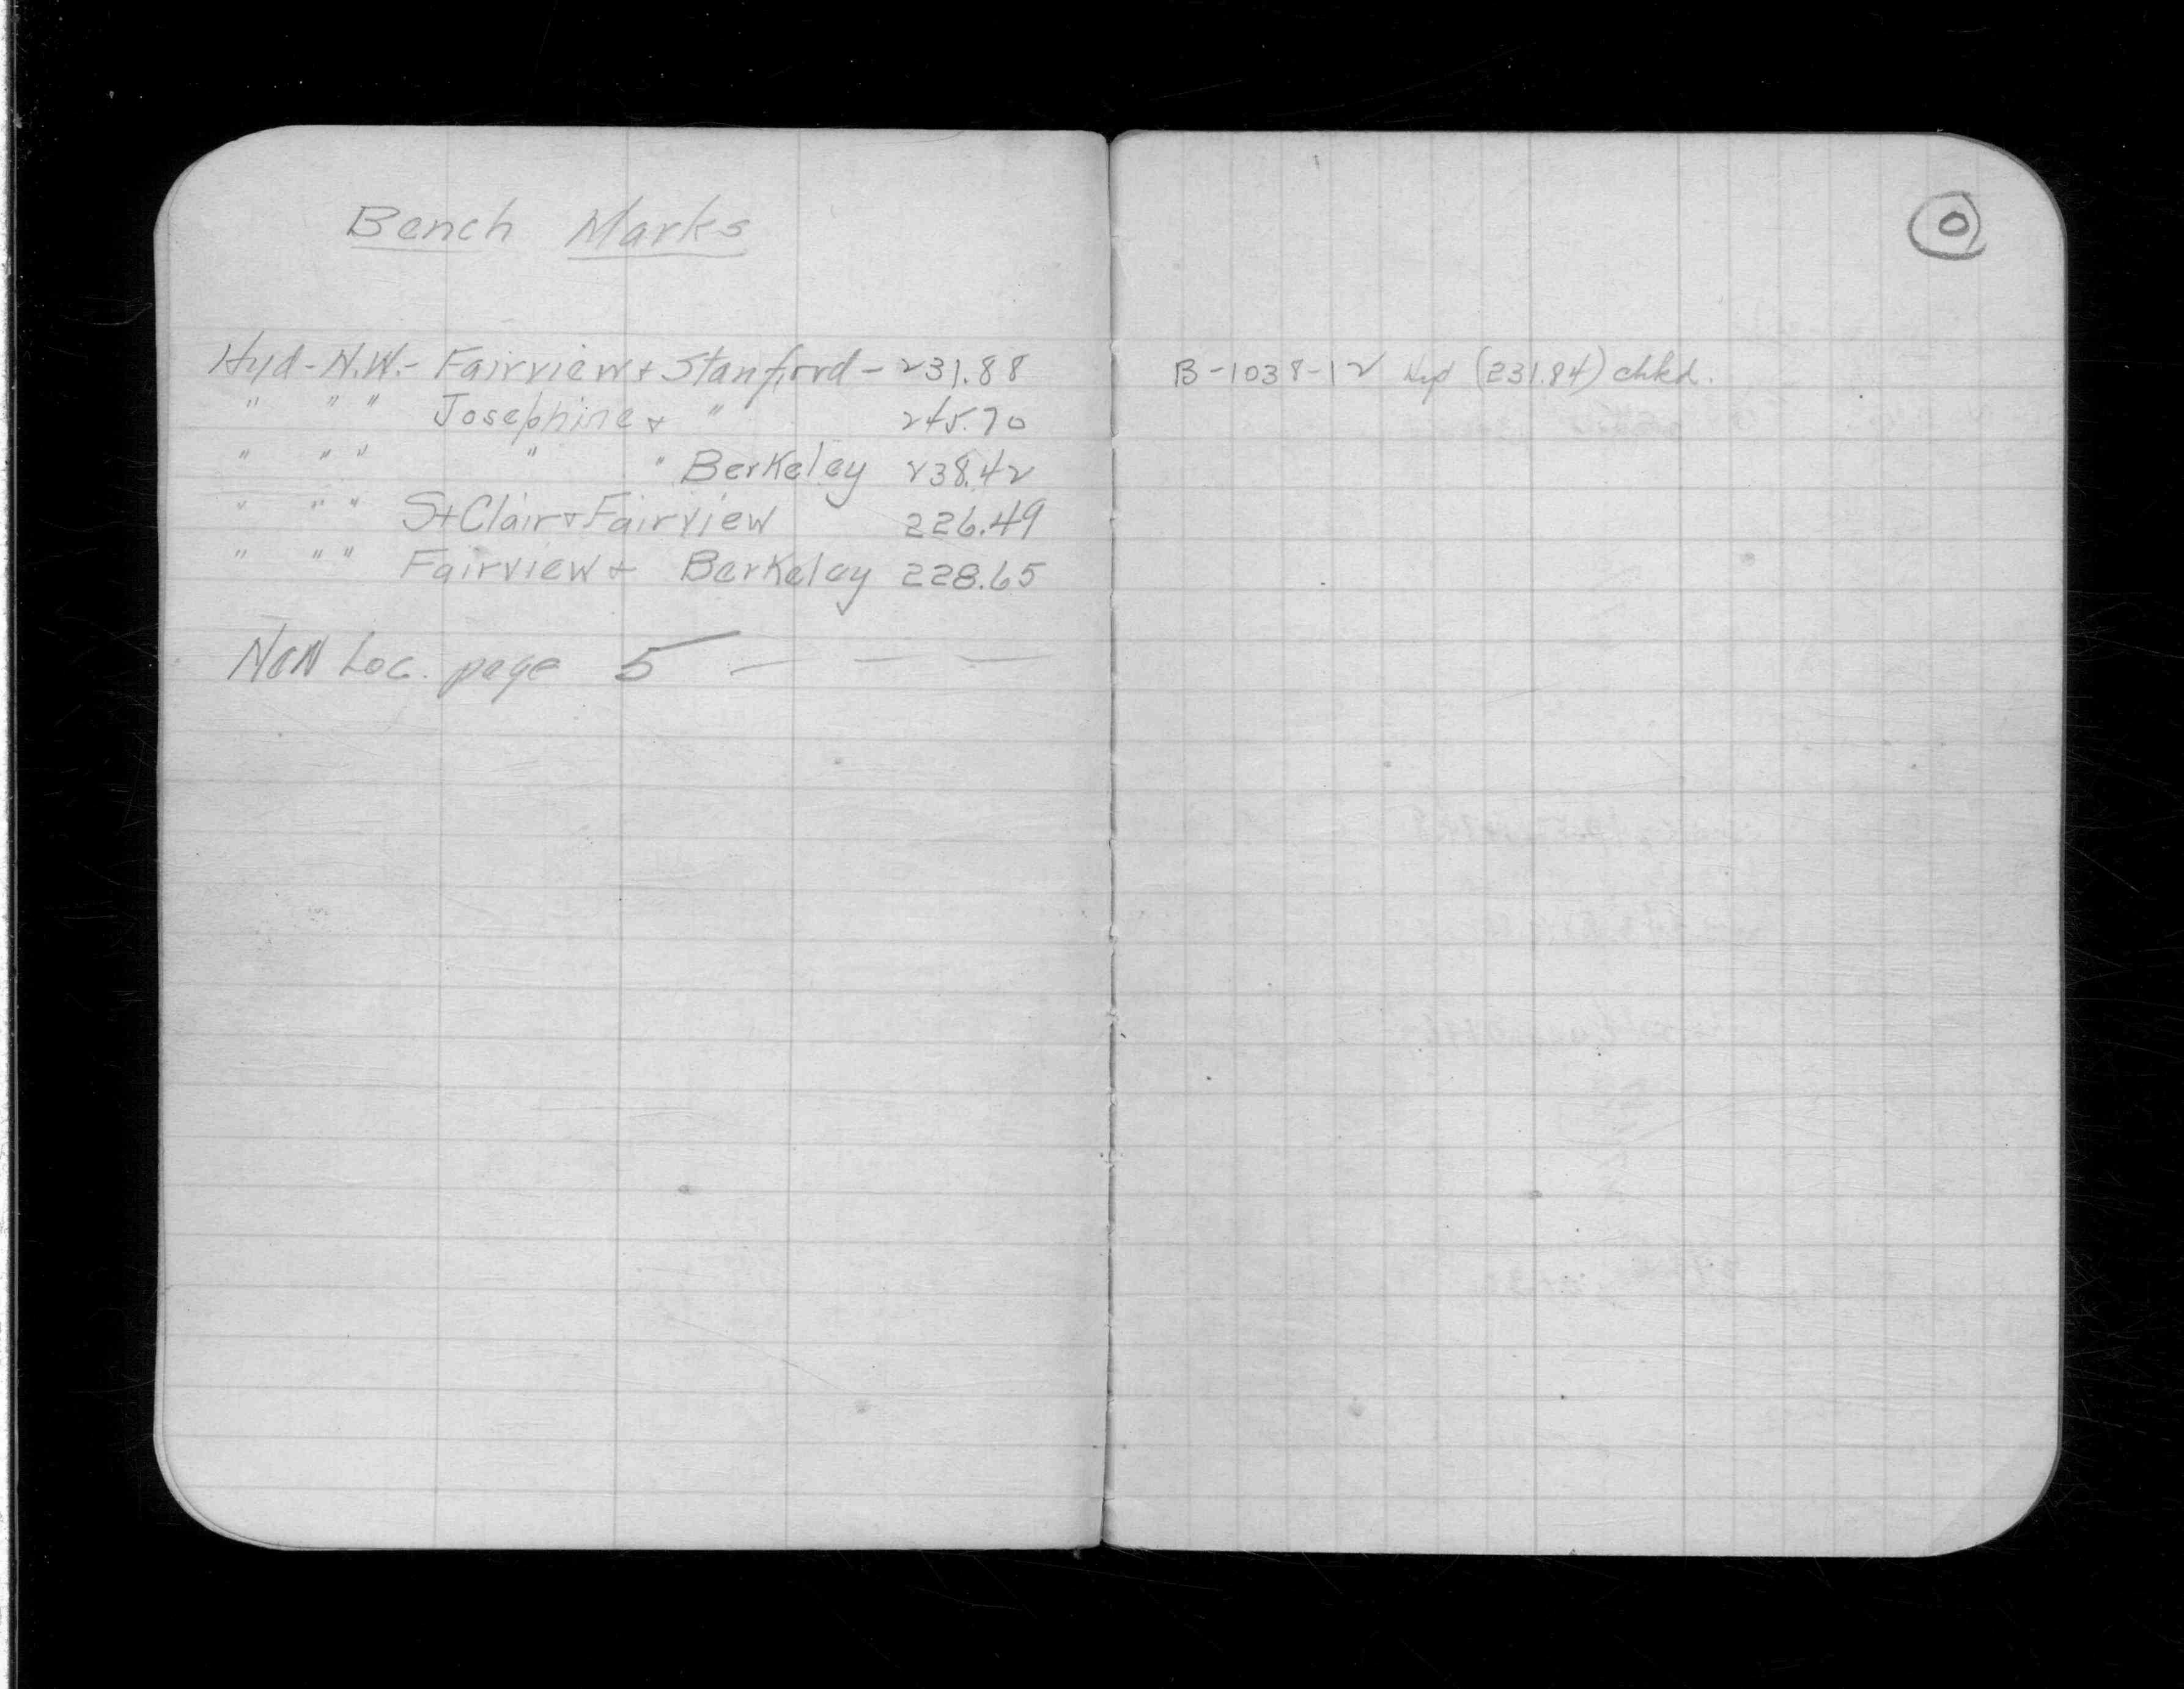 Bench Marks
Hyd - N.W. - Fairview & Stanford - 231.88
" " " Josephine & " 245.70
" " " " " Berkeley 238.42
" " " St Clair & Fairview 226.49
" " " Fairview & Berkeley 228.65
Mon Loc. page 5 — — —
0
B-1038-12 Hyd (231.84) chkd.